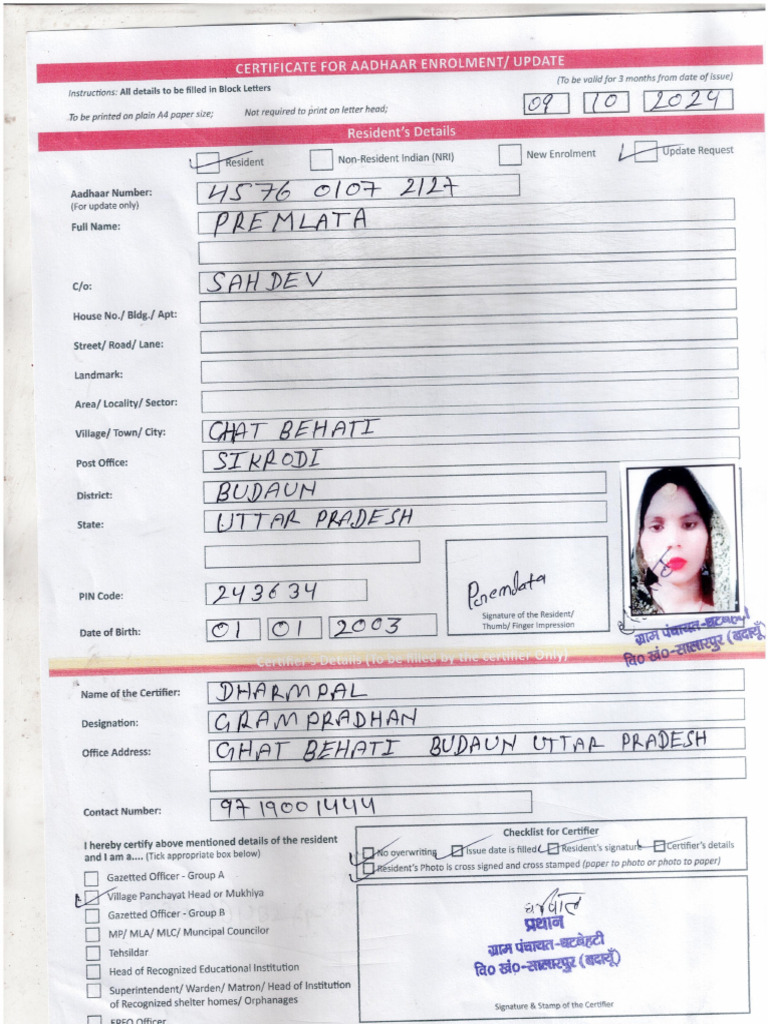 CERTIFICATE FOR AADHAAR ENROLMENT/ UPDATE
Instructions: All details to be filled in Block Letters
(To be valid for 3 months from date of issue)
To be printed on plain A4 paper size; Not required to print on letter head;
09 10 2024
Resident's Details
Resident Non-Resident Indian (NRI) New Enrolment Update Request
Aadhaar Number: 4576 0107 2127
(For update only)
Full Name: PREMLATA
C/o: SAHDEV
House No./ Bldg./ Apt:
Street/ Road/ Lane:
Landmark:
Area/ Locality/ Sector:
Village/ Town/ City: GHAT BEHATI
Post Office: SIKRODI
District: BUDAUN
State: UTTAR PRADESH
PIN Code: 243634
Premlata
Signature of the Resident/
Thumb/ Finger Impression
Date of Birth: 01 01 2003
ग्राम पंचायत-घटबेहटी
वि० खं०-सालारपुर (बदायूँ)
Certifier's Details (To be filled by the certifier Only)
Name of the Certifier: DHARMPAL
Designation: GRAM PRADHAN
Office Address: GHAT BEHATI BUDAUN UTTAR PRADESH
Contact Number: 9719001444
I hereby certify above mentioned details of the resident
and I am a.... (Tick appropriate box below)
Checklist for Certifier
No overwriting Issue date is filled Resident's signature Certifier's details
Resident's Photo is cross signed and cross stamped (paper to photo or photo to paper)
Gazetted Officer - Group A
Village Panchayat Head or Mukhiya
Gazetted Officer - Group B
MP/ MLA/ MLC/ Muncipal Councilor
Tehsildar
Head of Recognized Educational Institution
Superintendent/ Warden/ Matron/ Head of Institution
of Recognized shelter homes/ Orphanages
EPFO Officer
धर्मपाल
प्रधान
ग्राम पंचायत-घटबेहटी
वि० खं०-सालारपुर (बदायूँ)
Signature & Stamp of the Certifier